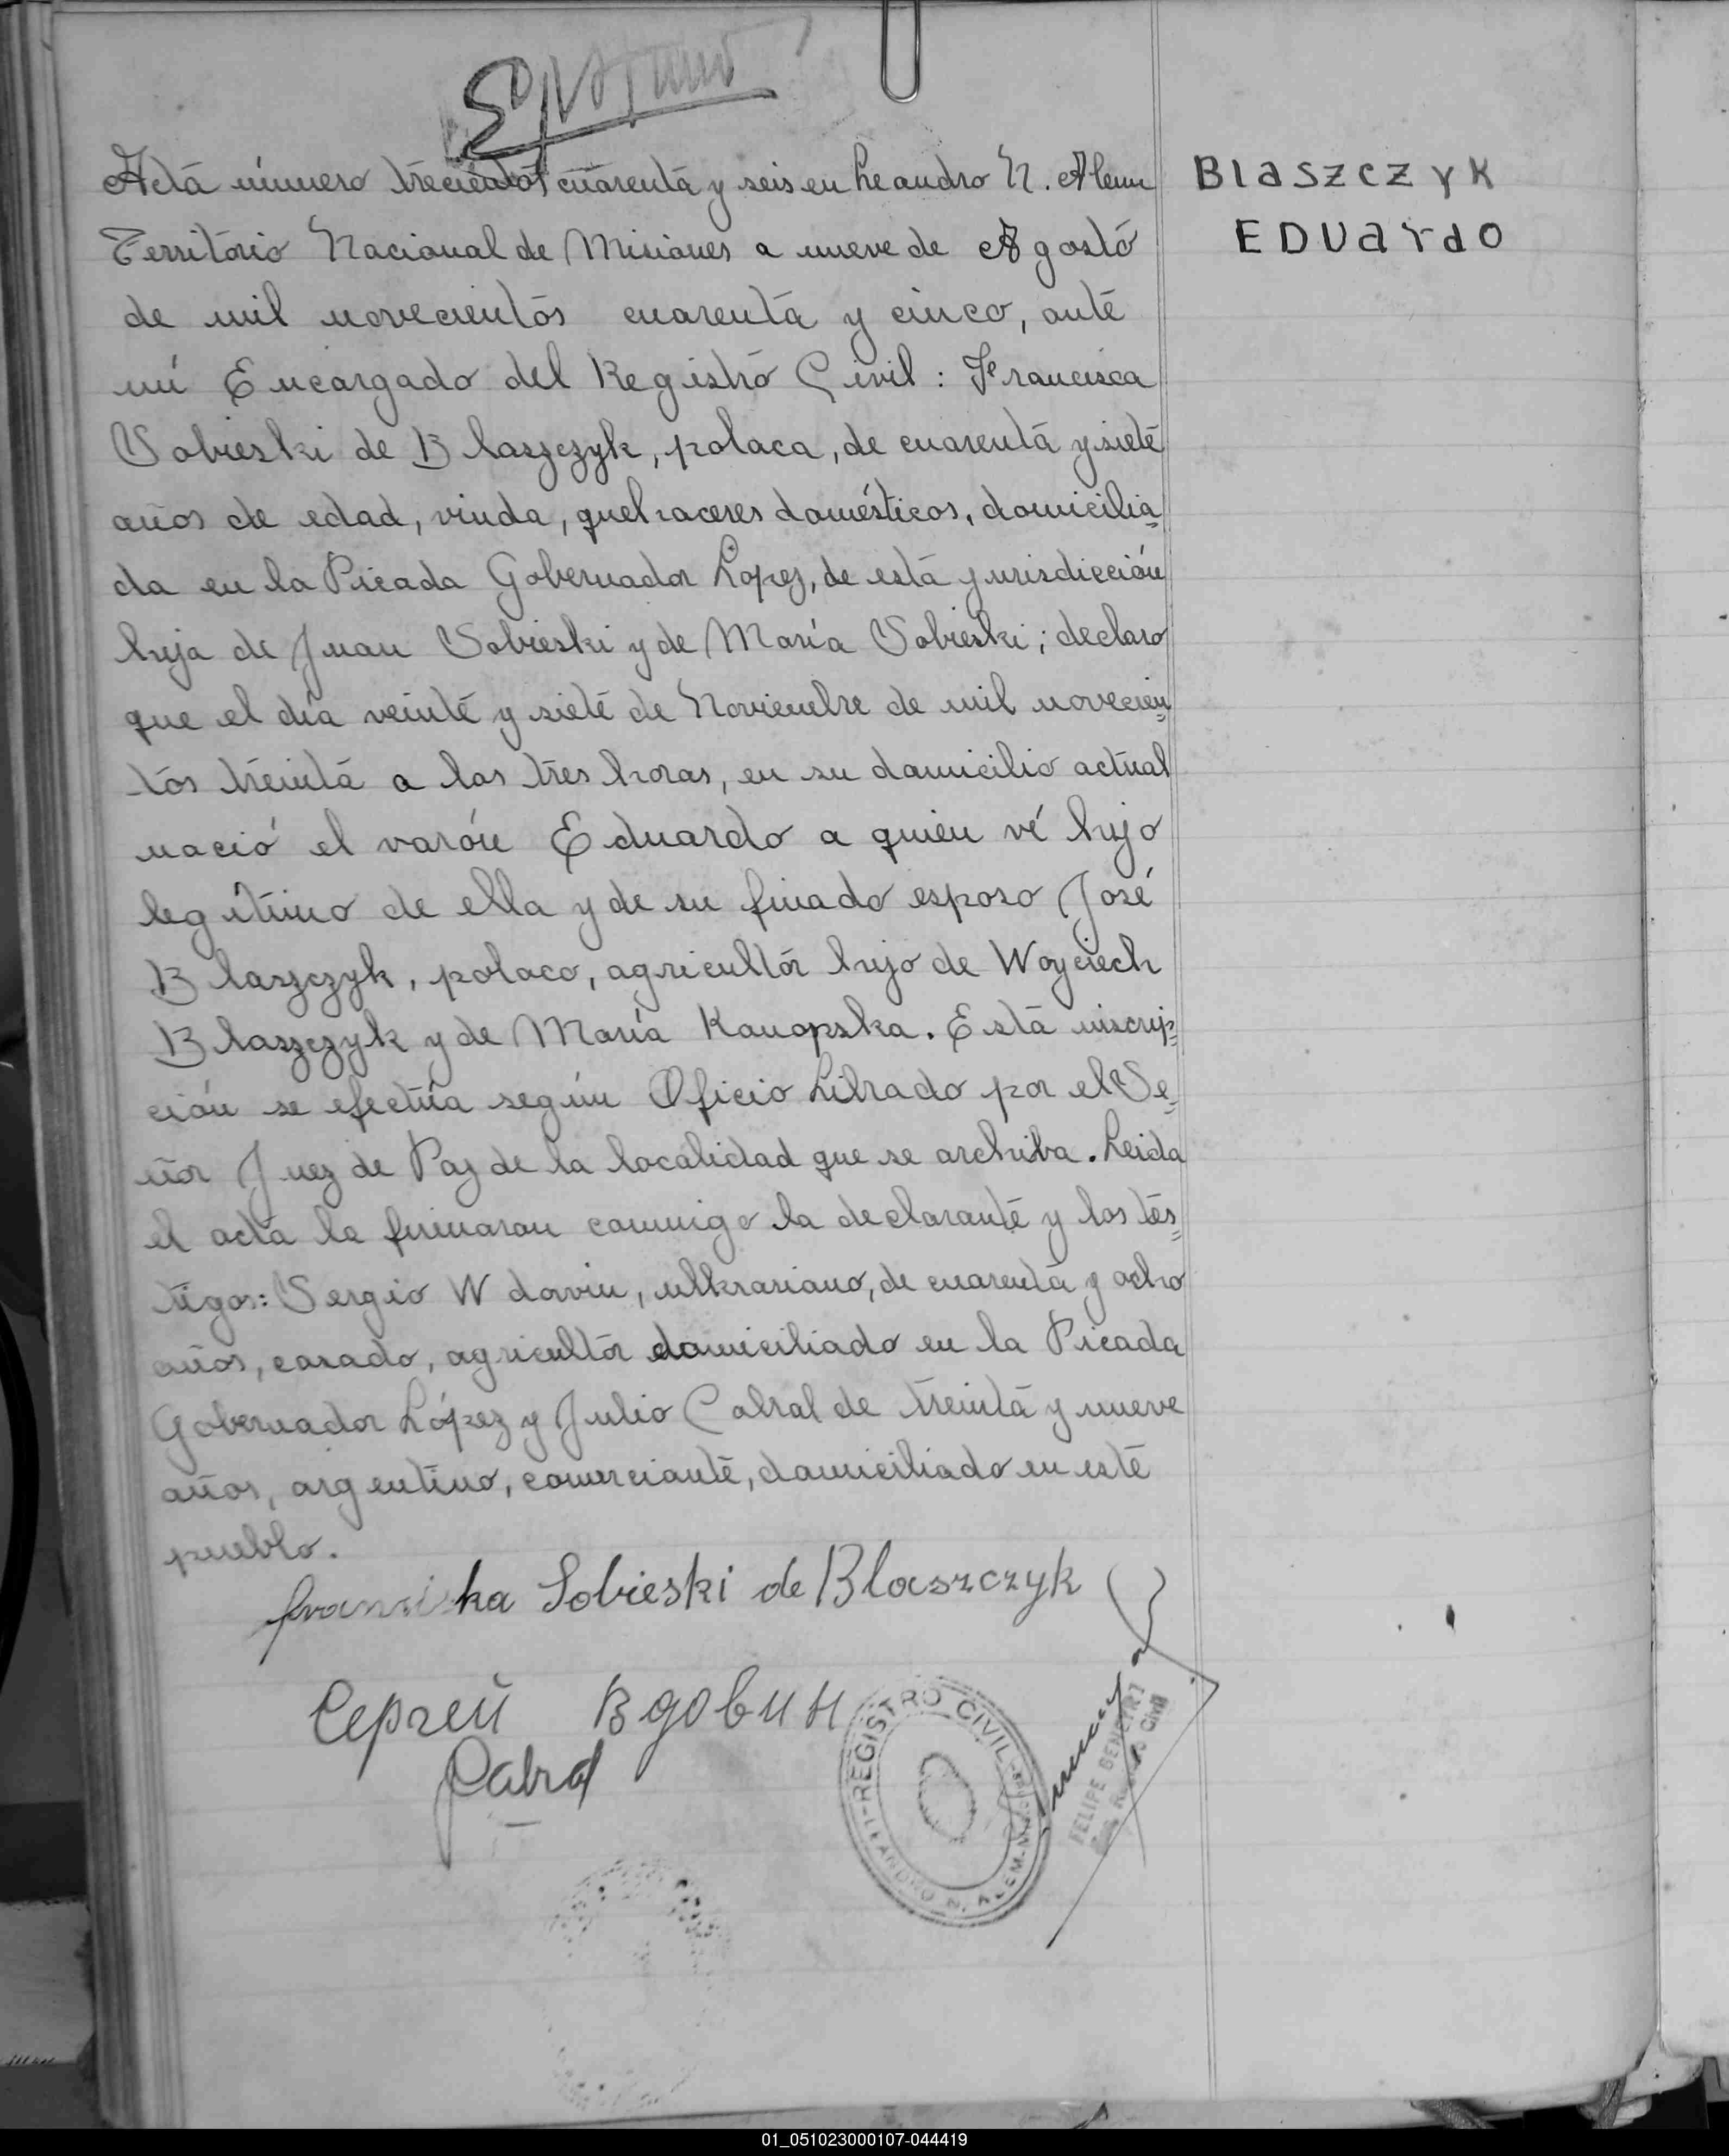 Blaszczyk
Eduardo
Acta número trecientos cuarenta y seis en Leandro N. Alem
Território Nacional de Misiones a nueve de Agosto
de mil novecientos cuarenta y cinco, ante
mi Encargado del Registro Civil: Francisca
Sobieski de Blaszczyk, polaca, de cuarenta y siete
años de edad, viuda, quehaceres domésticos, domicilia=
da en la Picada Gobernador Lopez, de esta jurisdicción
hija de Juan Sobieski y de María Sobieski; declaro
que el día veinte y siete de Noviembre de mil novecien=
tos treinta a las tres horas, en su domicilio actual
nació el varón Eduardo a quien vé hijo
legítimo de ella y de su finado esposo José
Blaszczyk, polaco, agricultor hijo de Woyciech
Blaszczyk y de María Kanopska. Esta inscrip=
ción se efectúa según Oficio Librado por el Se=
ñor Juez de Paz de la localidad que se archiba. Leida
el acta la firmaron conmigo la declarante y los tes=
tigos: Sergio Wdovin, ulkraniano, de cuarenta y ocho
años, casado, agricultor domiciliado en la Picada
Gobernador López y Julio Cabral de treinta y nueve
años, argentino, comerciante, domiciliado en este
pueblo.
Franziska Sobieski de Blaszczyk
Сергей Вдовин
JCabral
REGISTRO CIVIL
LEANDRO N. ALEM
FELIPE
01_051023000107-044419